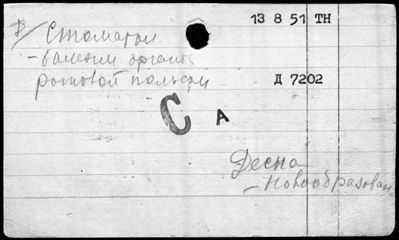 13 8 51 TH
Стоматол
- болезни органов
ротовой полости
Д 7202
С А
Десна
- Новообразован